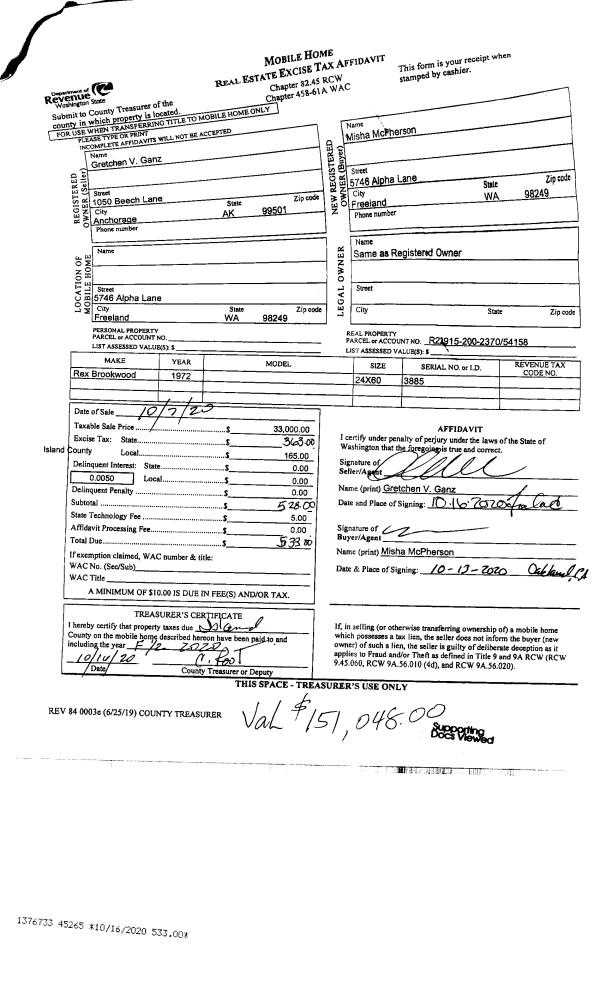 MOBILE HOME
REAL ESTATE EXCISE TAX AFFIDAVIT
Chapter 82.45 RCW
Chapter 458-61A WAC
This form is your receipt when
stamped by cashier.
Department of
Revenue
Washington State
Submit to County Treasurer of the
county in which property is located.
FOR USE WHEN TRANSFERRING TITLE TO MOBILE HOME ONLY
PLEASE TYPE OR PRINT
INCOMPLETE AFFIDAVITS WILL NOT BE ACCEPTED
REGISTERED
OWNER (Seller)
Name
Gretchen V. Ganz
Street
1050 Beech Lane
City State Zip code
Anchorage AK 99501
Phone number
NEW REGISTERED
OWNER (Buyer)
Name
Misha McPherson
Street
5746 Alpha Lane
City State Zip code
Freeland WA 98249
Phone number
LOCATION OF
MOBILE HOME
Name
Street
5746 Alpha Lane
City State Zip code
Freeland WA 98249
LEGAL OWNER
Name
Same as Registered Owner
Street
City State Zip code
PERSONAL PROPERTY
PARCEL or ACCOUNT NO.
LIST ASSESSED VALUE(S): $
REAL PROPERTY
PARCEL or ACCOUNT NO. R21915-200-2370/54158
LIST ASSESSED VALUE(S): $
MAKE YEAR MODEL SIZE SERIAL NO. or I.D. REVENUE TAX
CODE NO.
Rex Brookwood 1972 24X60 3885
Date of Sale 10/7/20
Taxable Sale Price $ 33,000.00
Excise Tax: State $ 363.00
Island County Local $ 165.00
Delinquent Interest: State $ 0.00
0.0050 Local $ 0.00
Delinquent Penalty $ 0.00
Subtotal $ 528.00
State Technology Fee $ 5.00
Affidavit Processing Fee $ 0.00
Total Due $ 533.00
If exemption claimed, WAC number & title:
WAC No. (Sec/Sub)
WAC Title
A MINIMUM OF $10.00 IS DUE IN FEE(S) AND/OR TAX.
AFFIDAVIT
I certify under penalty of perjury under the laws of the State of
Washington that the foregoing is true and correct.
Signature of
Seller/Agent
Name (print) Gretchen V. Ganz
Date and Place of Signing: 10.16.2020
Signature of
Buyer/Agent
Name (print) Misha McPherson
Date & Place of Signing: 10-13-2020 Oakland, CA
TREASURER'S CERTIFICATE
I hereby certify that property taxes due Island
County on the mobile home described hereon have been paid to and
including the year F/2 2020
10/16/20
Date County Treasurer or Deputy
If, in selling (or otherwise transferring ownership of) a mobile home
which possesses a tax lien, the seller does not inform the buyer (new
owner) of such a lien, the seller is guilty of deliberate deception as it
applies to Fraud and/or Theft as defined in Title 9 and 9A RCW (RCW
9.45.060, RCW 9A.56.010 (4d), and RCW 9A.56.020).
THIS SPACE - TREASURER'S USE ONLY
REV 84 0003e (6/25/19) COUNTY TREASURER
Val $151,048.00
Supporting
Docs Viewed
1376733 45265 *10/16/2020 533.00*